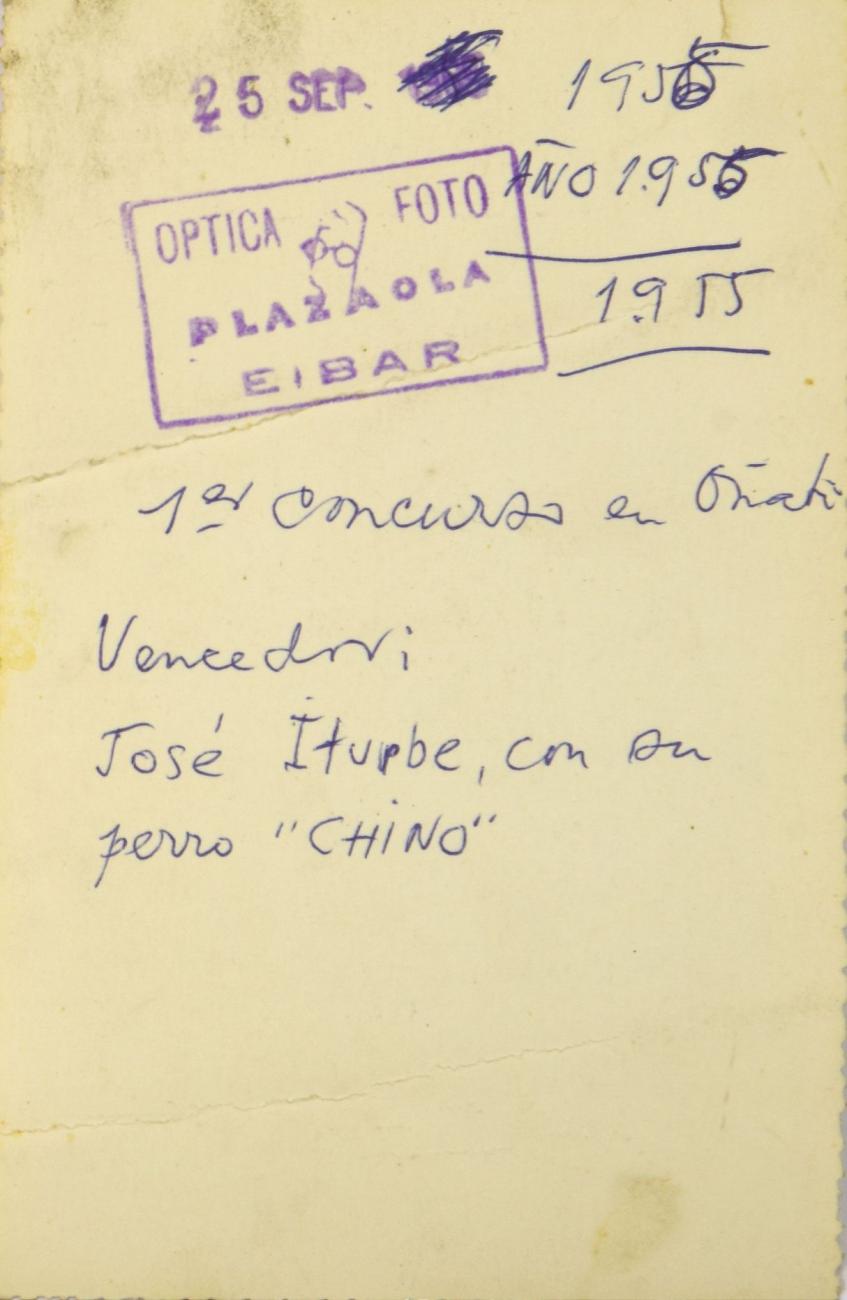 25 SEP. 1955
AÑO 1.955
OPTICA FOTO
PLAZAOLA
EIBAR
1.955
1er concurso en Oñati
Vencedor;
José Iturbe, con su
perro "CHINO"